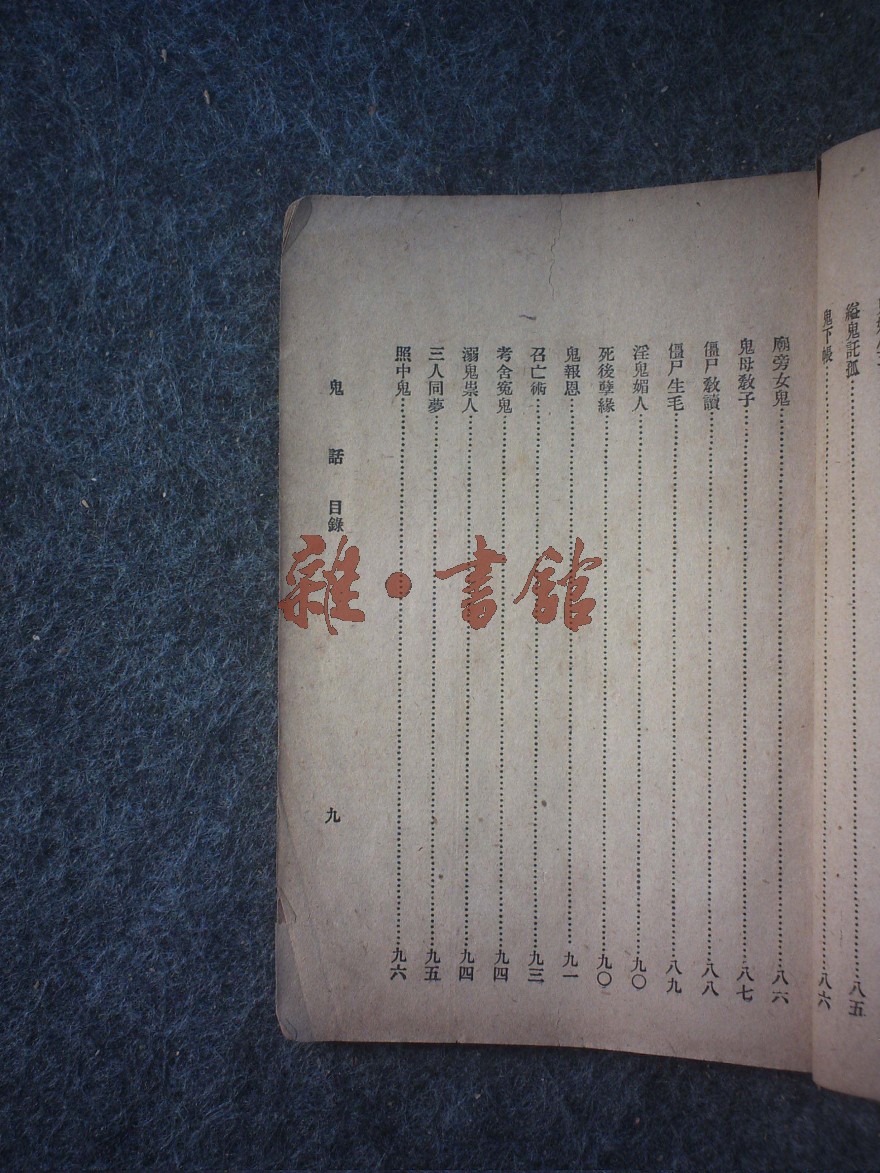 縊鬼託孤……八五
鬼下帳……八六
廟旁女鬼……八六
鬼母教子……八七
僵尸教讀……八八
僵尸生毛……八九
淫鬼媚人……九〇
死後孽緣……九〇
鬼報恩……九一
召亡術……九三
考舍冤鬼……九四
溺鬼祟人……九四
三人同夢……九五
照中鬼……九六
鬼話 目錄 九
雜·書館